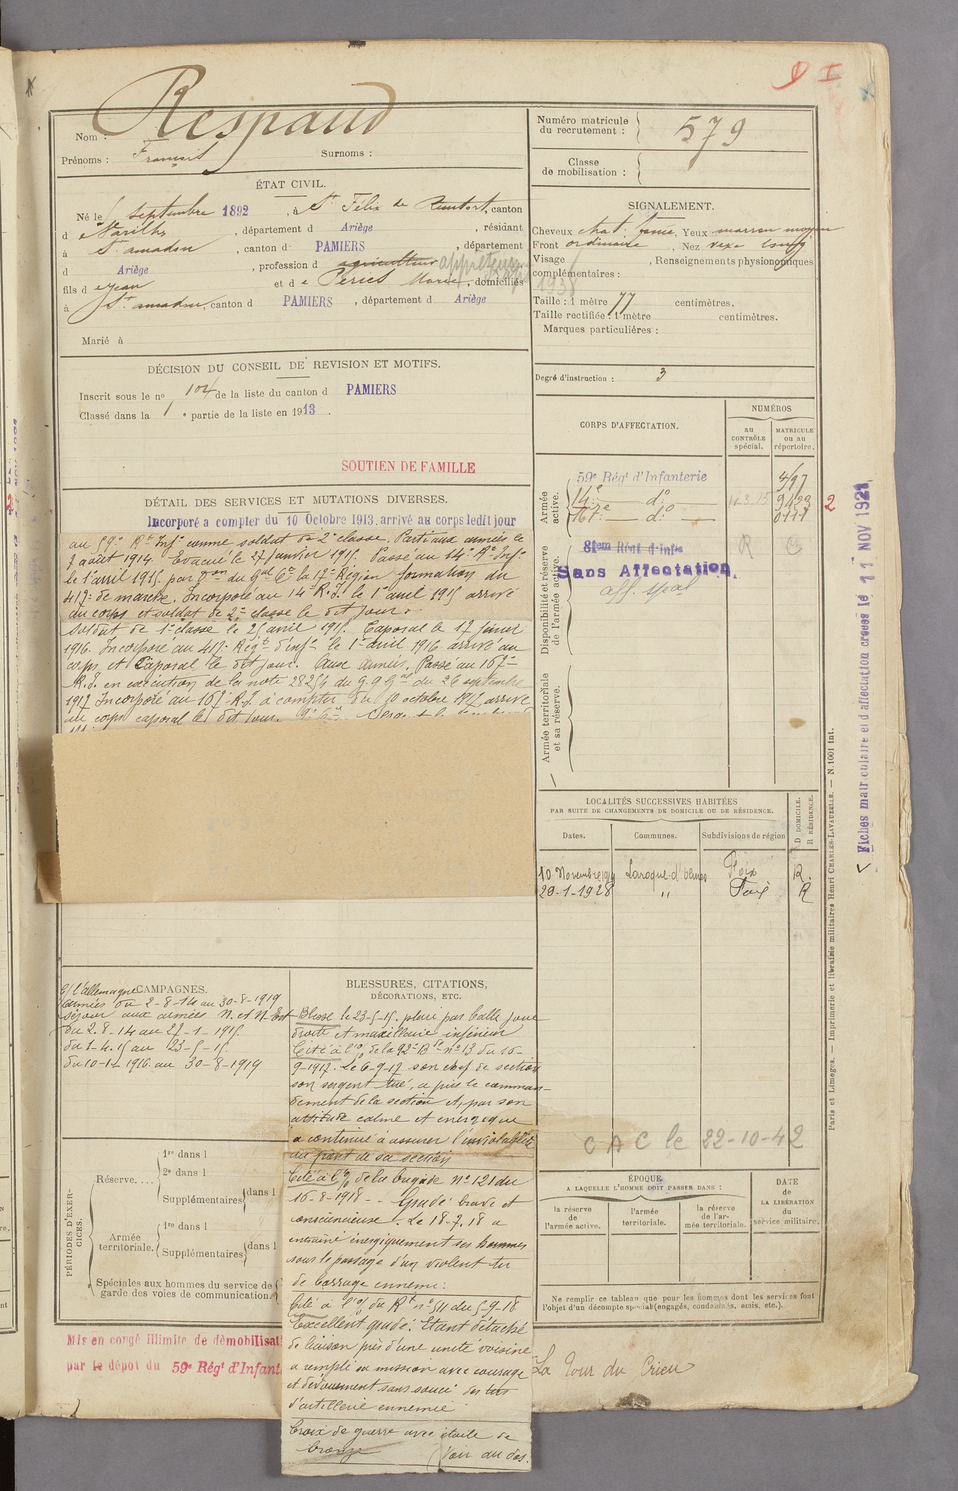 Nom : Respaud
Prénoms : François Surnoms :
ÉTAT CIVIL.
Né le septembre 1892, à St Félix de Rieutort, canton
d Varilhes, département d Ariège, résidant
à St amadou, canton d PAMIERS, département
d Ariège, profession d agriculteur
fils d e Jean et d e Péries Marie, domiciliés
à St amadou, canton d PAMIERS, département d Ariège
Marié à
DÉCISION DU CONSEIL DE REVISION ET MOTIFS.
Inscrit sous le no 104 de la liste du canton d PAMIERS
Classé dans la 1 e partie de la liste en 1913.
SOUTIEN DE FAMILLE
DÉTAIL DES SERVICES ET MUTATIONS DIVERSES.
Incorporé a compter du 10 Octobre 1913. arrivé au corps ledit jour
au 59e Rt Infie comme soldat de 2e classe. Parti aux armées le
7 août 1914. Evacué le 27 janvier 1915. Passé au 14e Rt Inf
le 1 avril 1915 par du Gal Ct la 17e Région formation du
417e de marche. Incorporé au 14e R.I. le 1 avril 1915 arrivé
au corps et soldat de 2e classe le dit jour.
Soldat de 1e classe le 25 avril 1915. Caporal le 17 février
1916. Incorporé au 417e Régt d'infie le 1er avril 1916 arrivé au
corps et Caporal le dit jour. Aux armées. Passé au 167e
R.I. en exécution de la note 28256 du G.Q.G. du 26 septembre
1917 Incorporé au 167e R.I. à compter du octobre 1917 arrivé
au corps caporal le dit jour.
CAMPAGNES.
C/ l'Allemagne
armées du 2-8-14 au 30-8-1919
Séjour aux armées N. et N. Est
du 2.8-14 au 27-1-1915
du 1-4-15 au 23-5-15
du 10-1-1916 au 30-8-1919
BLESSURES, CITATIONS,
DÉCORATIONS, ETC.
Blessé le 23-5-15. plaie par balle joue
droite et maxillaire inférieur
Cité à l'o/ de la 92e Bde no 13 du 16-
9-1917. Le 6-9-17 son chef de section
son sergent tué, a pris le comman-
dement de la section et, par son
attitude calme et énergique
a continué à assurer l'inviolabilité
du front de sa section
Cité à l'o/ de la brigade no 121 du
16-8-1918 - Gradé brave et
consciencieux. Le 18-7-18 a
entraîné énergiquement ses hommes
sous le passage d'un violent tir
de barrage ennemi.
Cité à l'o/ du Rt no 511 du 5-9-18
Excellent gradé. Etant détaché
de liaison près d'une unité voisine
a rempli sa mission avec courage
et dévouement sans souci des tirs
d'artillerie ennemie
Croix de guerre avec étoile de
bronze (Voir au dos.
PÉRIODES D'EXERCICES.
Réserve....
1re dans l
2e dans l
Supplémentaires dans l
Armée territoriale.
1re dans l
Supplémentaires dans l
Spéciales aux hommes du service de
garde des voies de communication.
Mis en congé illimité de démobilisat
par le dépôt du 59e Régt d'Infant
Numéro matricule
du recrutement : 579
Classe
de mobilisation :
SIGNALEMENT.
Cheveux chat. foncé, Yeux marron moyen
Front ordinaire, Nez vexe long
Visage , Renseignements physionomiques
complémentaires :
1938
Taille : 1 mètre 77 centimètres.
Taille rectifiée : 1 mètre centimètres.
Marques particulières :
Degré d'instruction : 3
CORPS D'AFFECTATION.
NUMÉROS
au CONTRÔLE spécial.
MATRICULE ou au répertoire.
Armée active.
59e Régt d'Infanterie
14e do 9423
167e do
2
Disponibilité et réserve de l'armée active.
81em Rent d'Infie R C
Sans Affectation
aff. spal
Armée territoriale et sa réserve.
LOCALITÉS SUCCESSIVES HABITÉES
PAR SUITE DE CHANGEMENTS DE DOMICILE OU DE RÉSIDENCE.
Dates. Communes. Subdivisions de région D DOMICILE. R RÉSIDENCE.
10 Novembre Laroque-d'Olmes Foix R.
29-1-1928 " Foix R
CAC le 22-10-42
ÉPOQUE
A LAQUELLE L'HOMME DOIT PASSER DANS :
la réserve de l'armée active.
l'armée territoriale.
la réserve de l'armée territoriale.
DATE de LA LIBÉRATION du service militaire.
Ne remplir ce tableau que pour les hommes dont les services font
l'objet d'un décompte spécial (engagés, condamnés, exis, etc.).
La Tour du Crieu
Paris et Limoges. — Imprimerie et librairie militaires Henri CHARLES-LAVAUZELLE. — N. 1001 int.
Fiches matriculaire et d'affectation creees le 11 NOV 1921